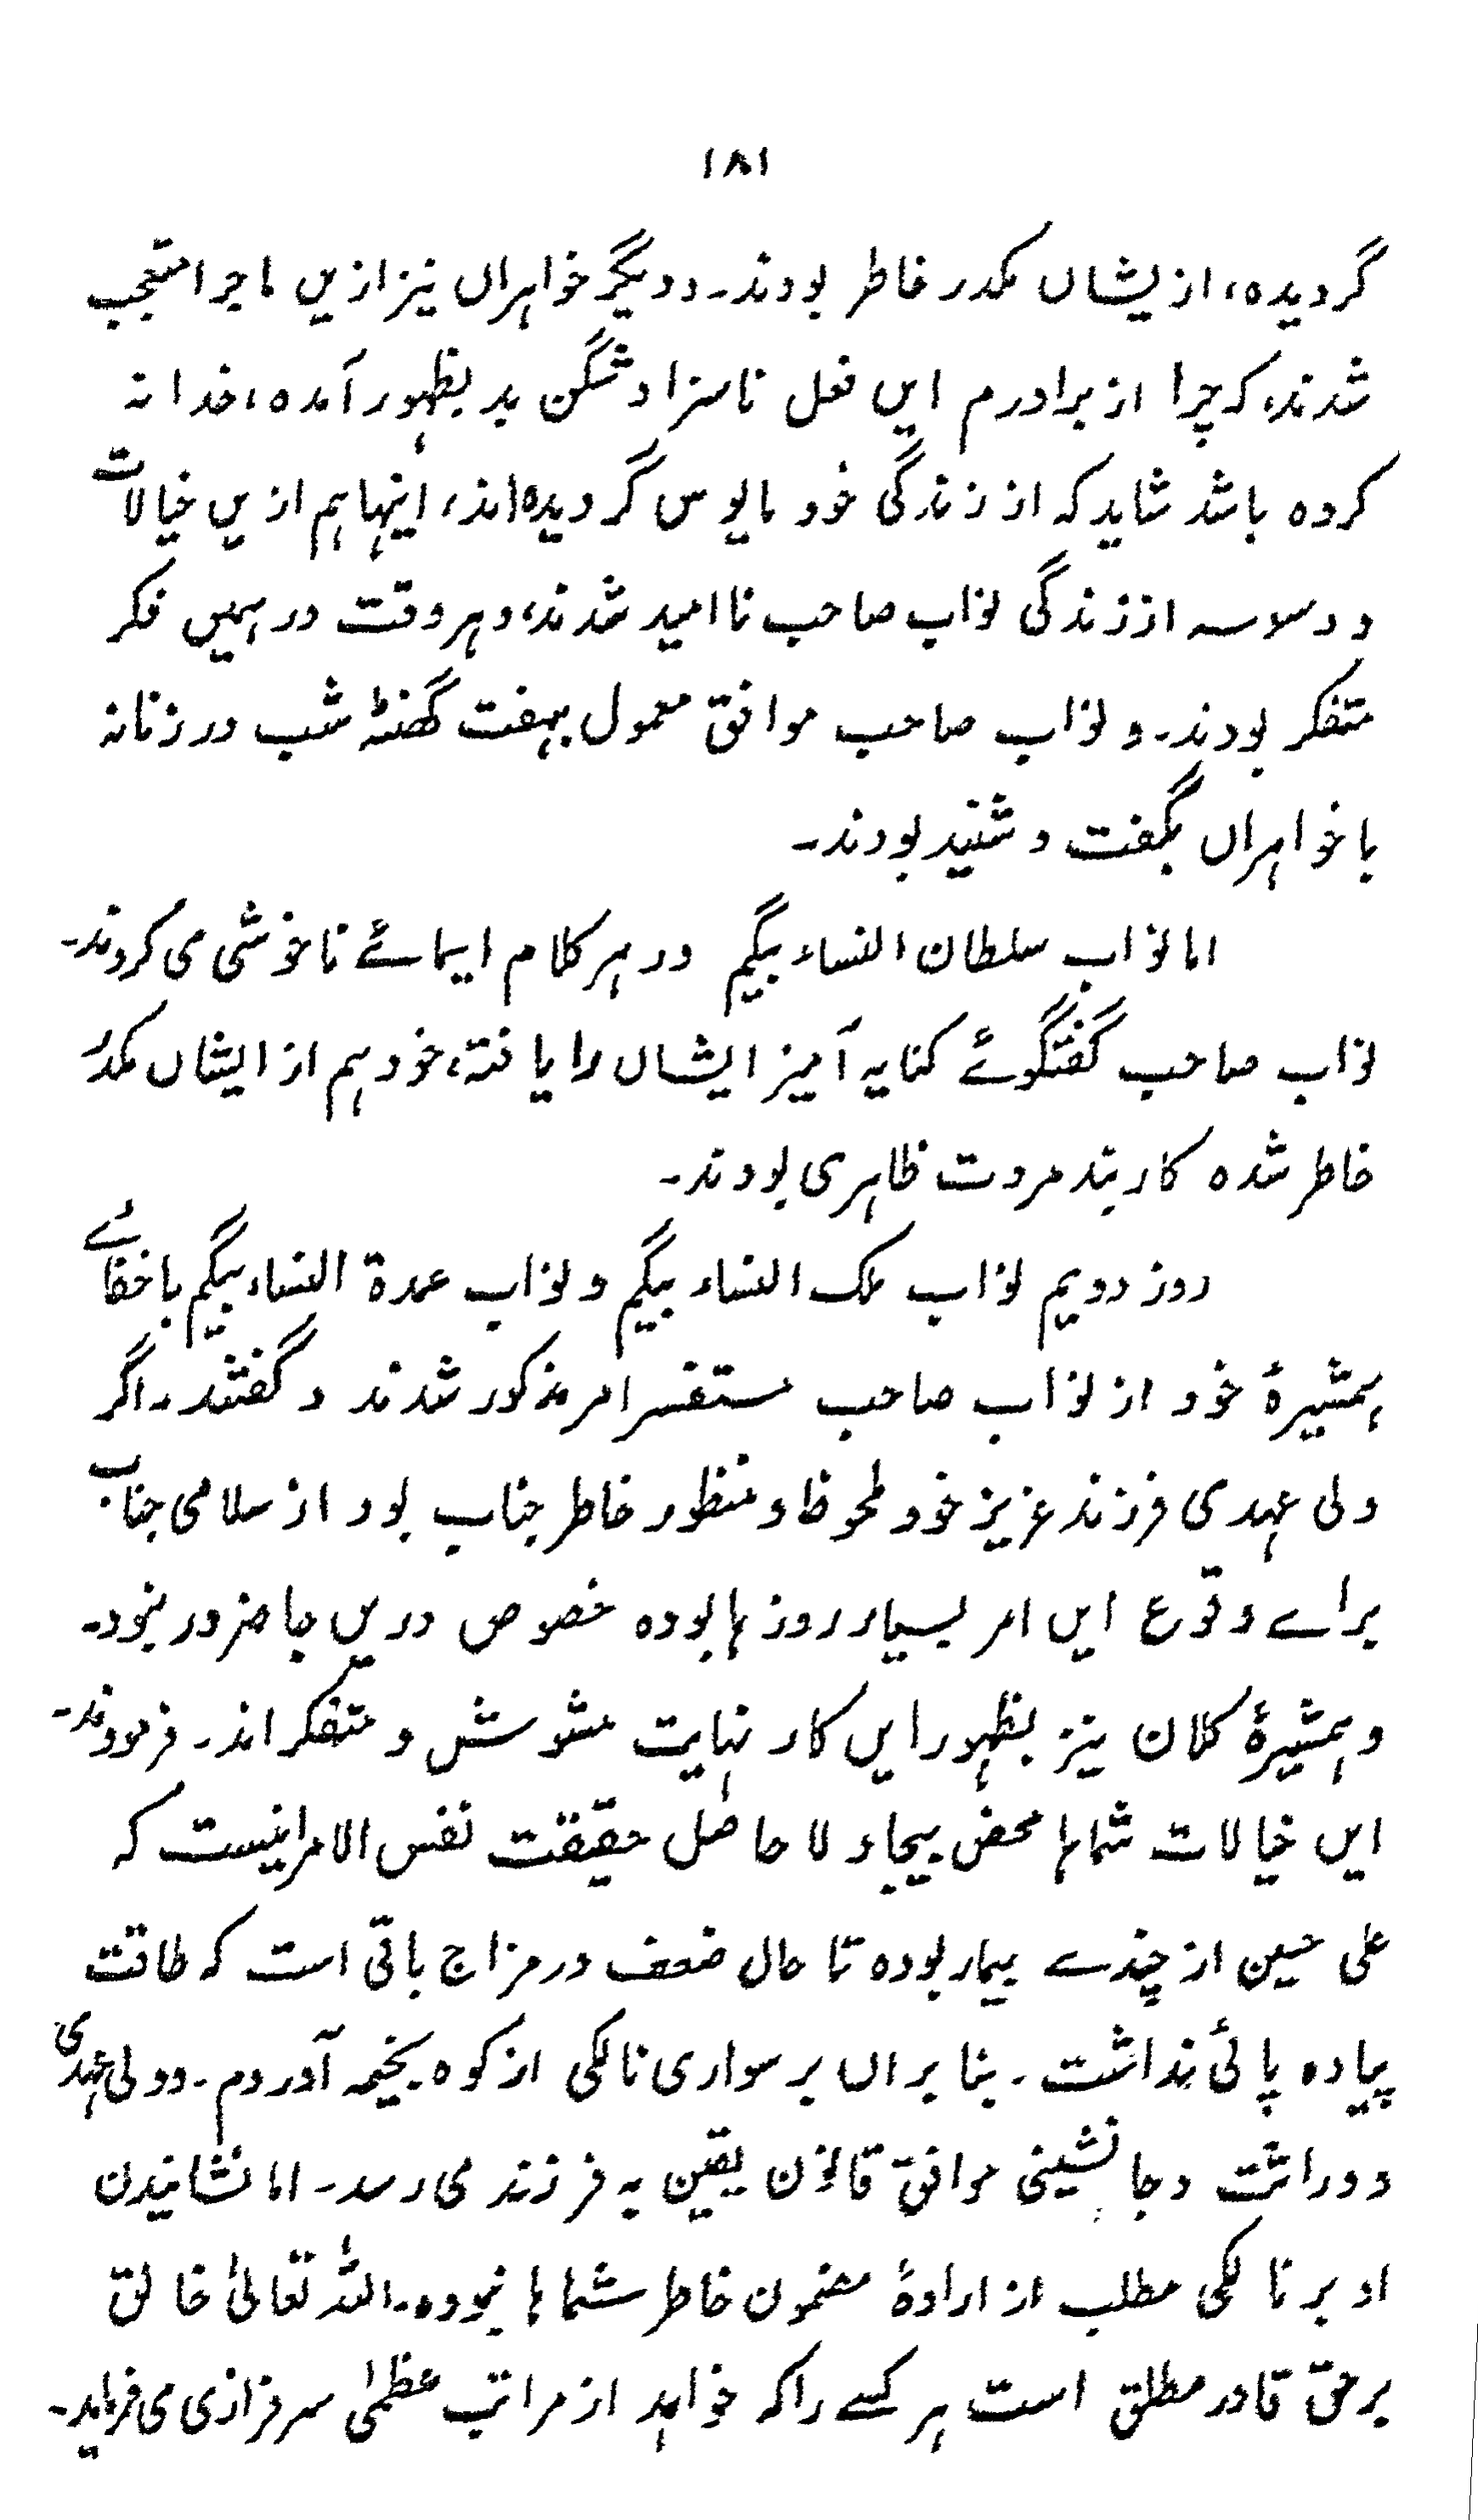 ۱۸۱
گردیده، ازیشاں مکدر خاطر بودند۔ ودیگر خواہراں نیز ازیں ماجرا متعجب
شدند، کہ چرا از برادرم ایں فعل ناسزا و شگن بد بظہور آمدہ، خدا نہ
کردہ باشد شاید کہ از زندگی خود مایوس گردیدہ اند، اینہا ہم ازیں خیالات
و وسلاسہ از زندگی نواب صاحب نا امید شدند، وہر وقت در ہمیں فکر
متفکر بودند۔ و نواب صاحب موافق معمول بہفت گھنٹہ شب در زنانہ
با خواہراں بگفت و شنید بودند۔
اما نواب سلطان النساء بیگم در ہر کلام ایمائے ناخوشی می کردند۔
نواب صاحب گفتگوئے کنایہ آمیز ایشاں را یافتہ، خود ہم از ایشاں مکدر
خاطر شدہ کاربند مروت ظاہری بودند۔
روز دویم نواب ملک النساء بیگم و نواب عمدة النساء بیگم باخفائے
ہمشیرۂ خود از نواب صاحب مستفسر امر مذکور شدند و گفتند۔ اگر
ولی عہدی فرزند عزیز خود ملحوظ و منظور خاطر جناب بود از سلامی جناب
براے وقوع ایں امر بسیار روز ہا بودہ خصوص دریں جا ضرور نبود۔
وہمشیرۂ کلان نیز بظہور ایں کار نہایت مشوش و متفکر اند۔ فرمودند۔
ایں خیالات شماہا محض بیجا و لا حاصل حقیقت نفس الامر اینست کہ
علی حسین از چندے بیمار بودہ تا حال ضعف در مزاج باقی است کہ طاقت
پیادہ پائی نداشت۔ بنا براں بر سواری نالکی از کوہ بخیمہ آوردم۔ و ولی عہدی
و وراثت و جانشینی موافق قانون یقین بہ فرزند می رسد۔ اما نشانیدن
او بر نالکی مطلب از ارادۂ مضمون خاطر شماہا نبودہ۔ اللہ تعالیٰ خالق
برحق قادر مطلق است ہر کسے را کہ خواہد از مراتب عظمیٰ سرفرازی می فرماید۔